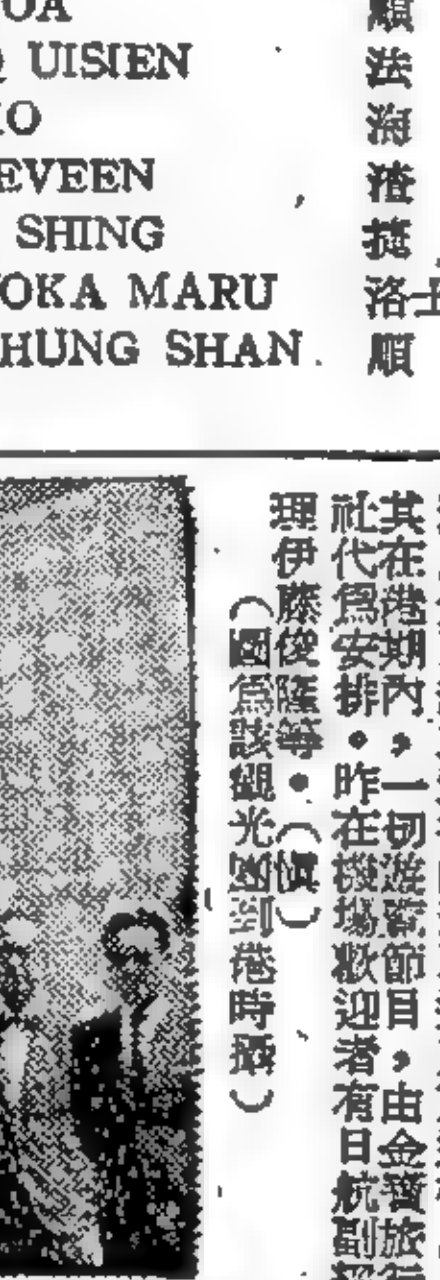 OA
UISIEN
EVEEN
SHING
OKA MARU
HUNG SHAN.
順
法
海
渣
捷
洛士
順
其在港期內,一切游覽節目,由金寶旅行
社代爲安排。昨在機場歡迎者有日航副
理伊藤俊隆等。(慎)
(圖爲該觀光團到港時攝)